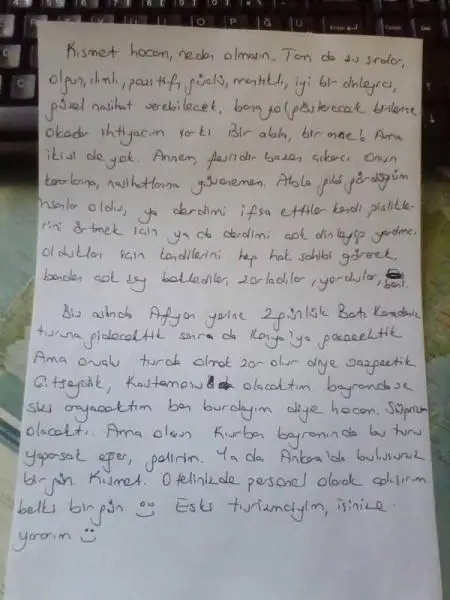 Kısmet hocam, neden olmasın. Tam da şu sıralar,
olgun, ılımlı, pozitif, güçlü, mantıklı, iyi bir dinleyici,
güzel nasihat verebilecek, bana yol gösterecek birilerine
okadar ihtiyacım var ki. Bir abla, bir anne! Ama
ikisi de yok. Annem, fevridir bazen çıkarcı. Onun
kararlarına, nasihatlarına güvenemem. Abla gibi gördüğüm
insanlar oldu, ya derdimi ifşa ettiler kendi pislikle-
rini örtmek için ya da derdimi çok dinleyip yardımcı
oldukları için kendilerini hep hak sahibi görerek,
benden çok şey beklediler, zorladılar, yordular, beni.
Biz aslında Afyon yerine 2 günlük Batı Karadeniz
turuna gidecektik sonra da Konya'ya geçecektik
Ama oruçlu turda olmak zor olur diye vazgeçtik
Gitseydik, Kastamonu olacaktım bayramda ve
sizi arayacaktım ben burdayım diye hocam. Sürpriz
olacaktı. Ama olsun Kurban bayramında bu turu
yaparsak eğer, gelirim. Ya da Ankara'da buluşuruz
bir gün Kısmet. Otelinizde personel olarak çalışırım
belki bir gün Eski turizmciyim, işinize
yararım